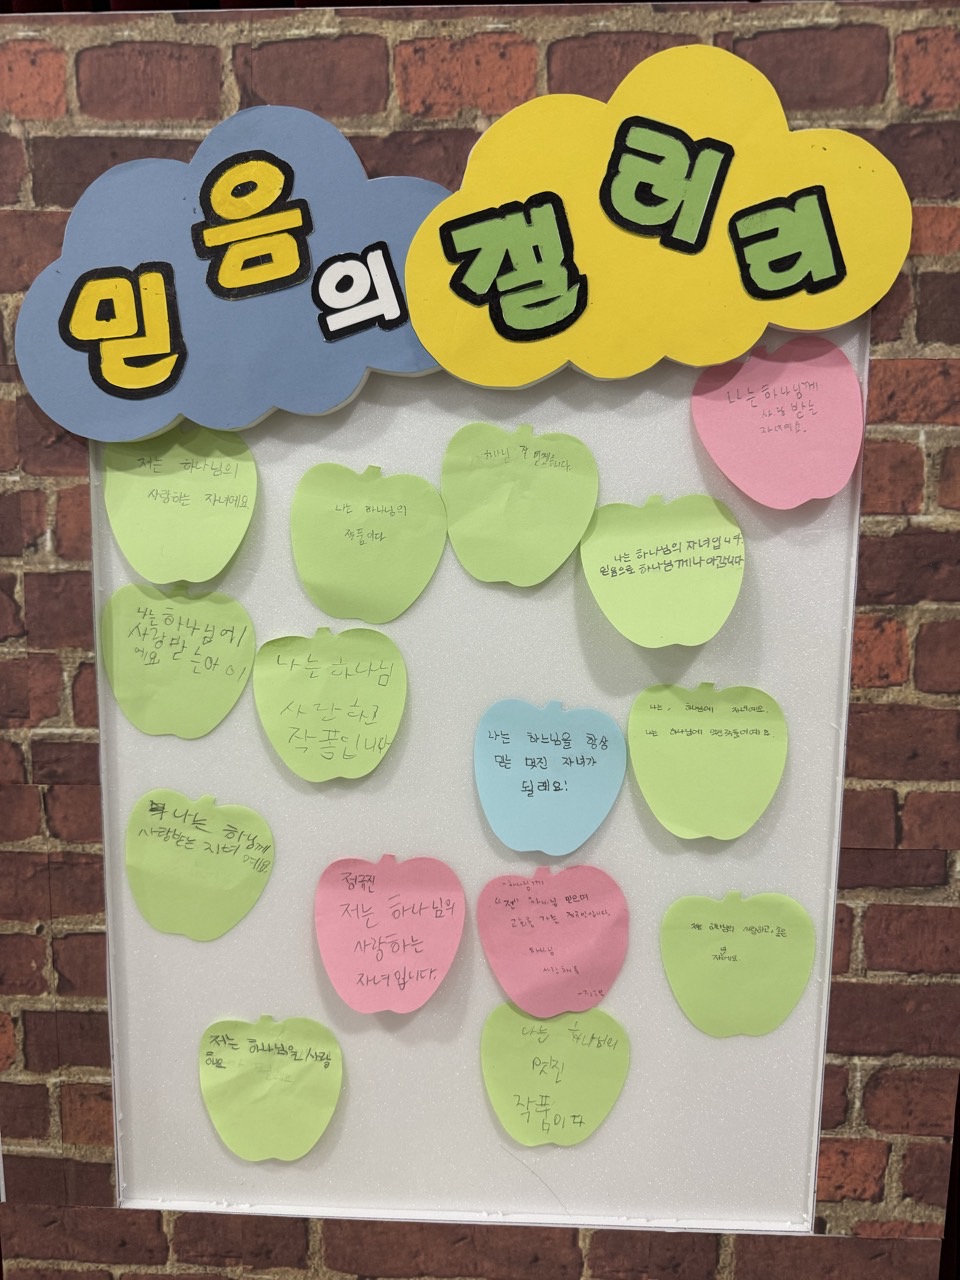 믿음의
갤러리
나는하나님께
사랑받는
자녀예요.
저는 하나님의
사랑하는 자녀에요
나는 하나님의
작품이다
나는 하나님의 자녀입니다.
믿음으로 하나님께 나아갑니다
나는하나님에
사랑받는아이
에요
나는 하나님
사랑하고
작품입니다
나는 하느님을 항상
믿는 멋진 자녀가
될레요!
나는, 하나님에 자녀에요.
나는 하나님에
나는 하나님께
사랑받는 자녀
예요.
정규진
저는 하나님의
사랑하는
자녀입니다.
하나님께
하나님 믿으며
교회를 가는
하나님
저는 하나님의
저는 하나님을 사랑
해요
나는 하나님의
멋진
작품이다